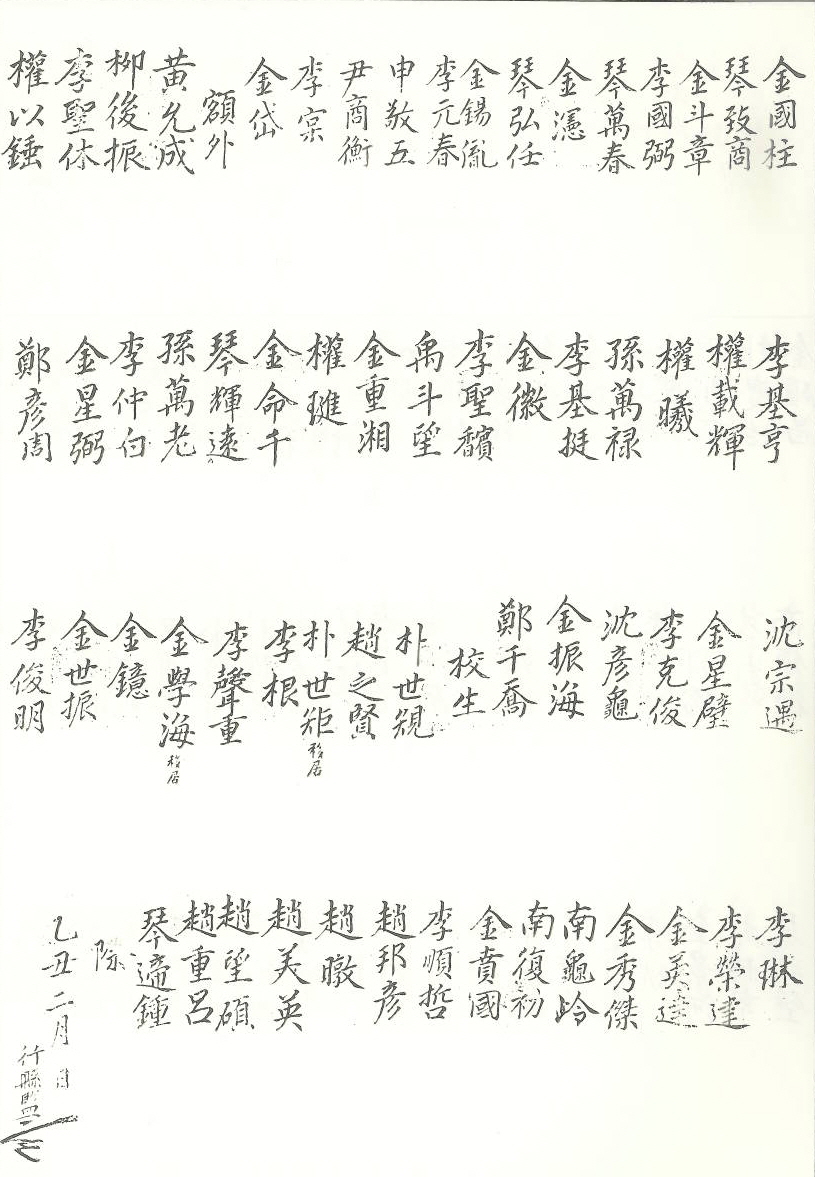 金國柱
琴致商
金斗章
李國弼
琴萬春
金濦
琴弘任
金錫胤
李元春
申敬五
尹商衡
李寀
金岱
額外
黄允成
柳後振
李聖休
權以錘
李基亨
權載輝
權曦
孫萬禄
李基挺
金徽
李聖馪
禹斗望
金重湘
權璡
金命千
琴輝遠
孫萬老
李仲白
金星弼
鄭彦周
沈宗遇
金星壁
李克俊
沈彦龜
金振海
鄭千喬
校生
朴世規
趙之賢
朴世矩 移居
李根
李聲重
金學海 移居
金鏡
金世振
李俊明
李琳
李榮達
金英達
金秀傑
南龜岭
南復初
金賁國
李順哲
趙邦彦
趙暾
趙美英
趙望碩
趙重呂
琴適鍾
際
乙丑二月 日
行縣監